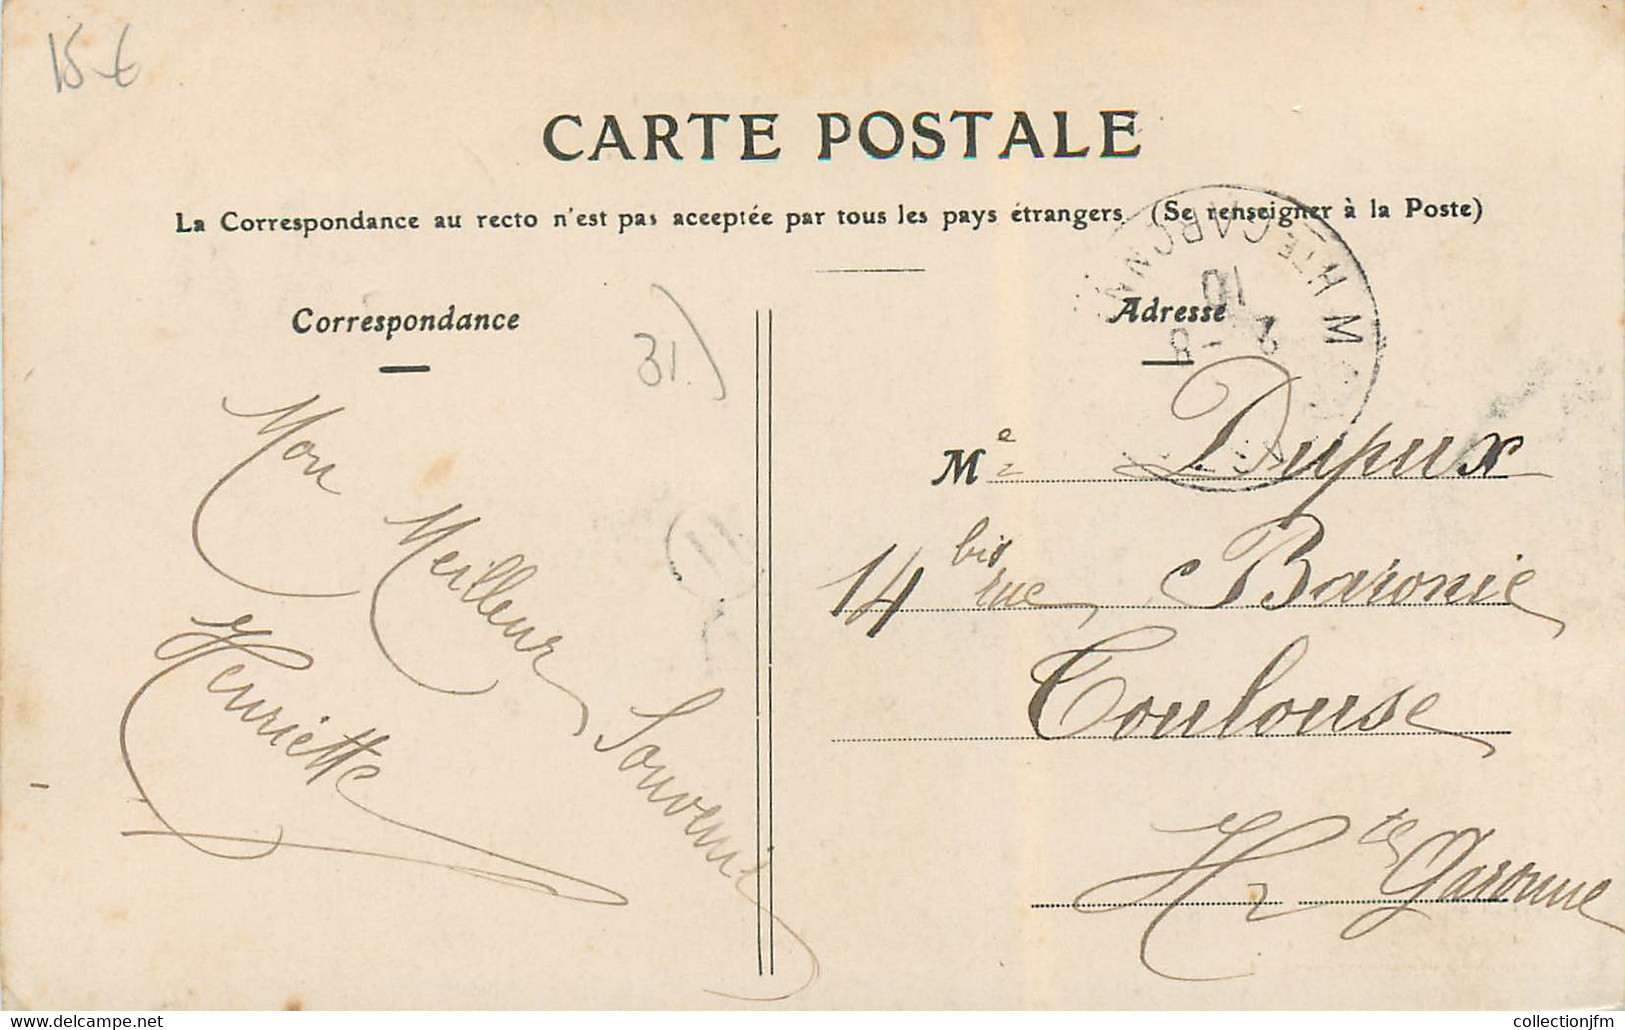 15 €
CARTE POSTALE
La Correspondance au recto n'est pas acceptée par tous les pays étrangers (Se renseigner à la Poste)
Correspondance
31)
Mon
Meilleur
Souvenir
Henriette
11
Adresse
Hte GARONNE
10
2 - 8
Me Dupux
14 bis rue Baronie
Toulouse
Hte Garonne
collectionjfm